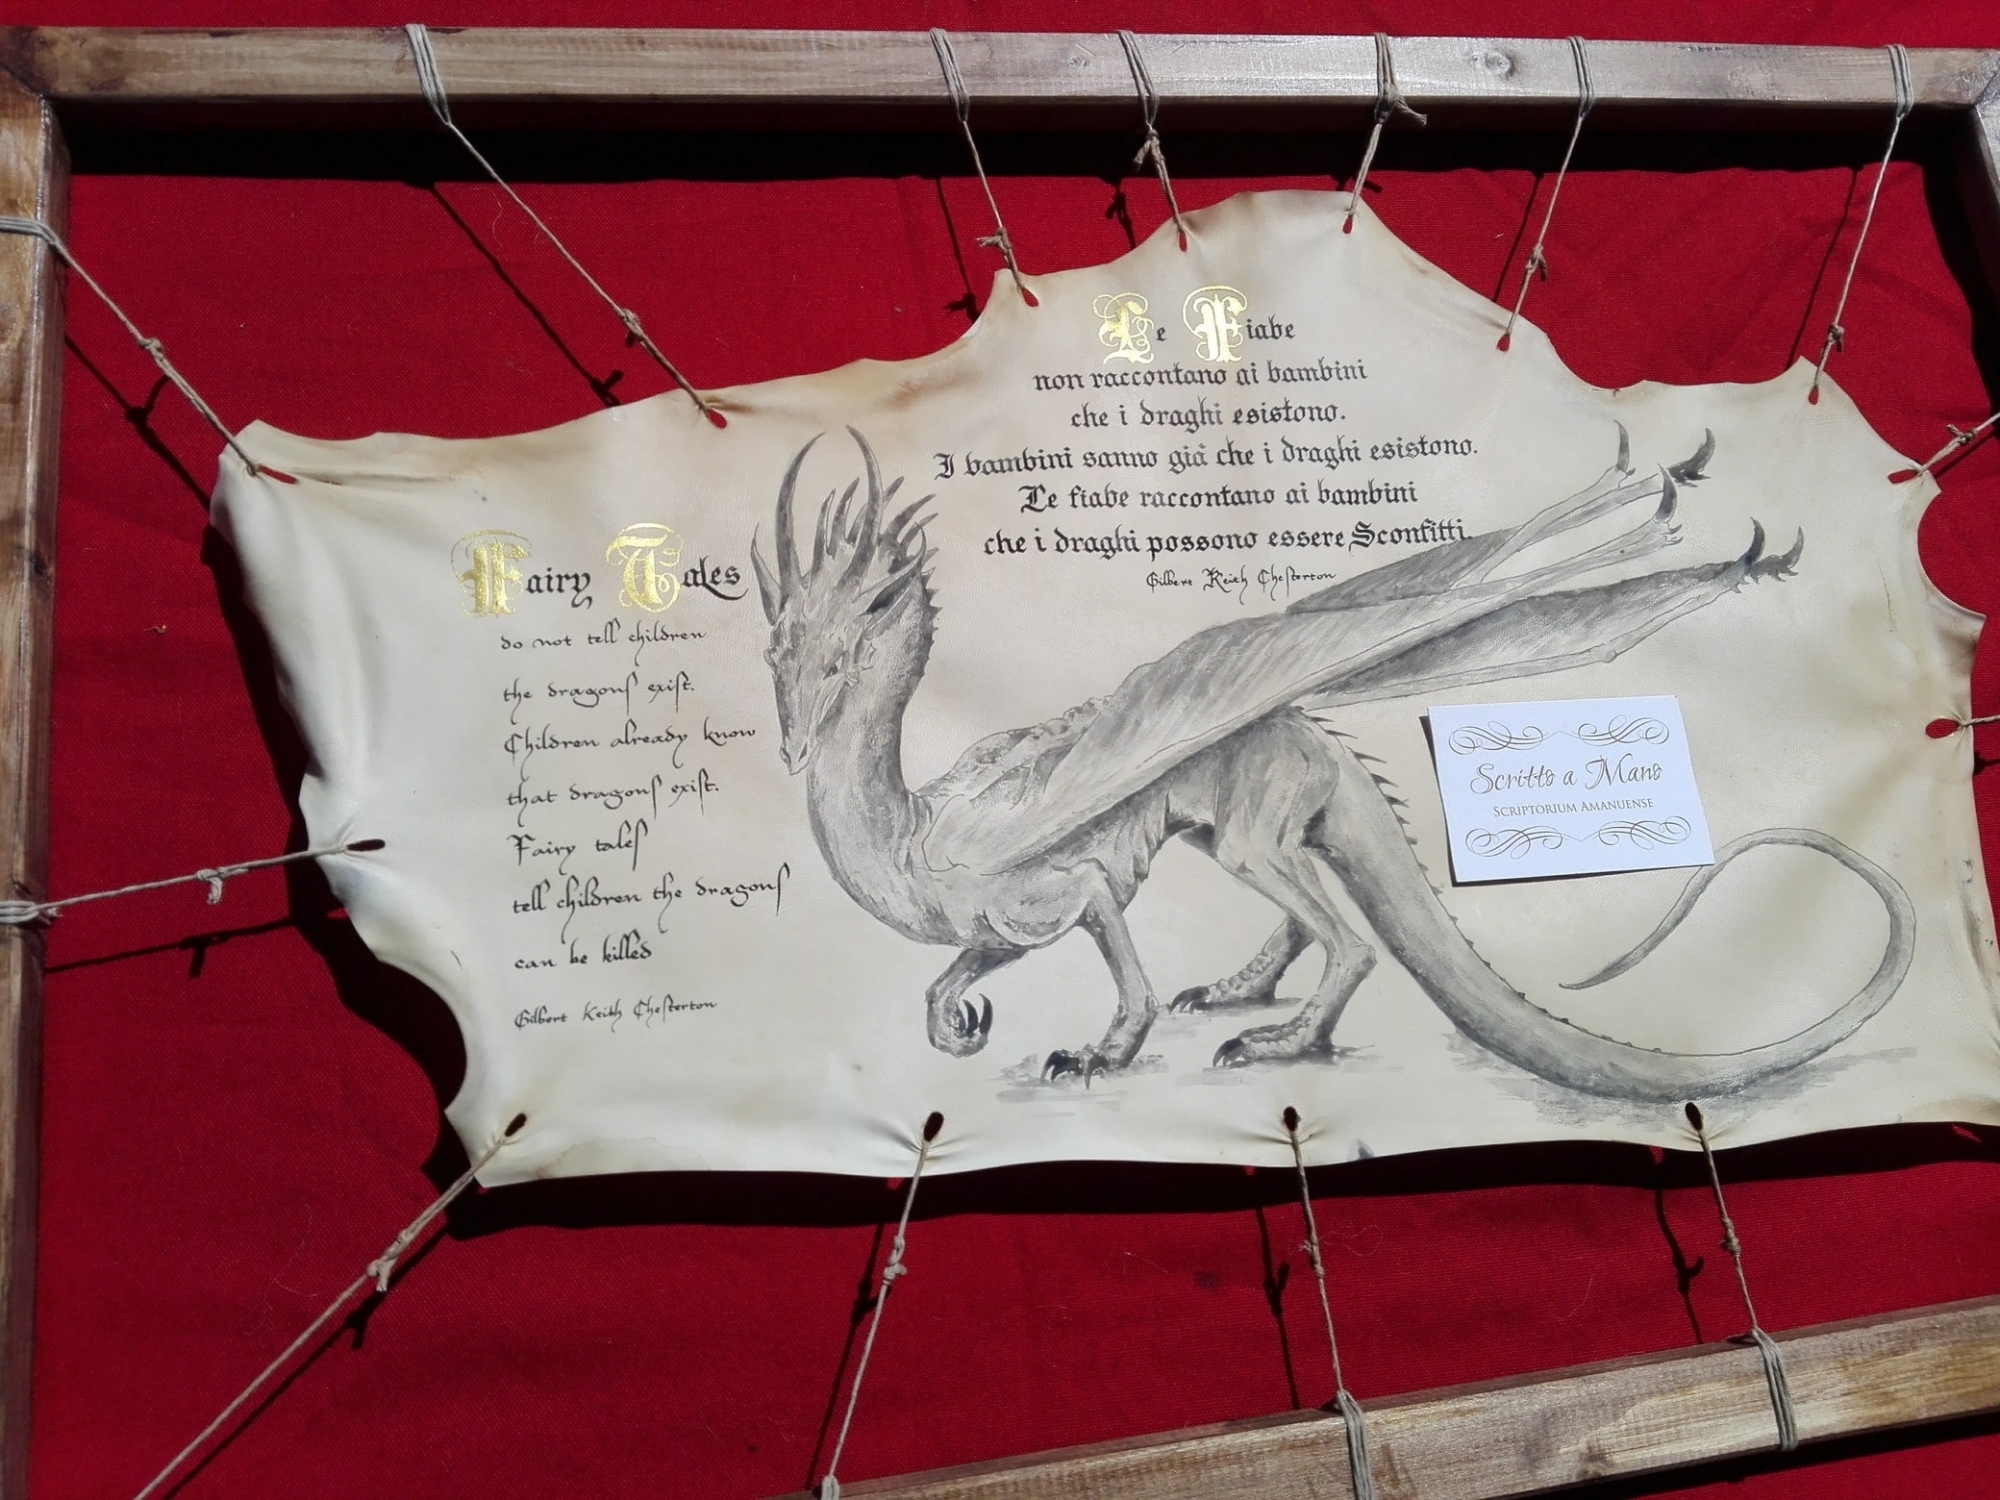 Fairy Tales
do not tell children
the dragons exist.
Children already know
that dragons exist.
Fairy tales
tell children the dragons
can be killed
Gilbert Keith Chesterton
Le Fiabe
non raccontano ai bambini
che i draghi esistono.
I bambini sanno già che i draghi esistono.
Le fiabe raccontano ai bambini
che i draghi possono essere Sconfitti.
Gilbert Keith Chesterton
Scritto a Mano
SCRIPTORIUM AMANUENSE